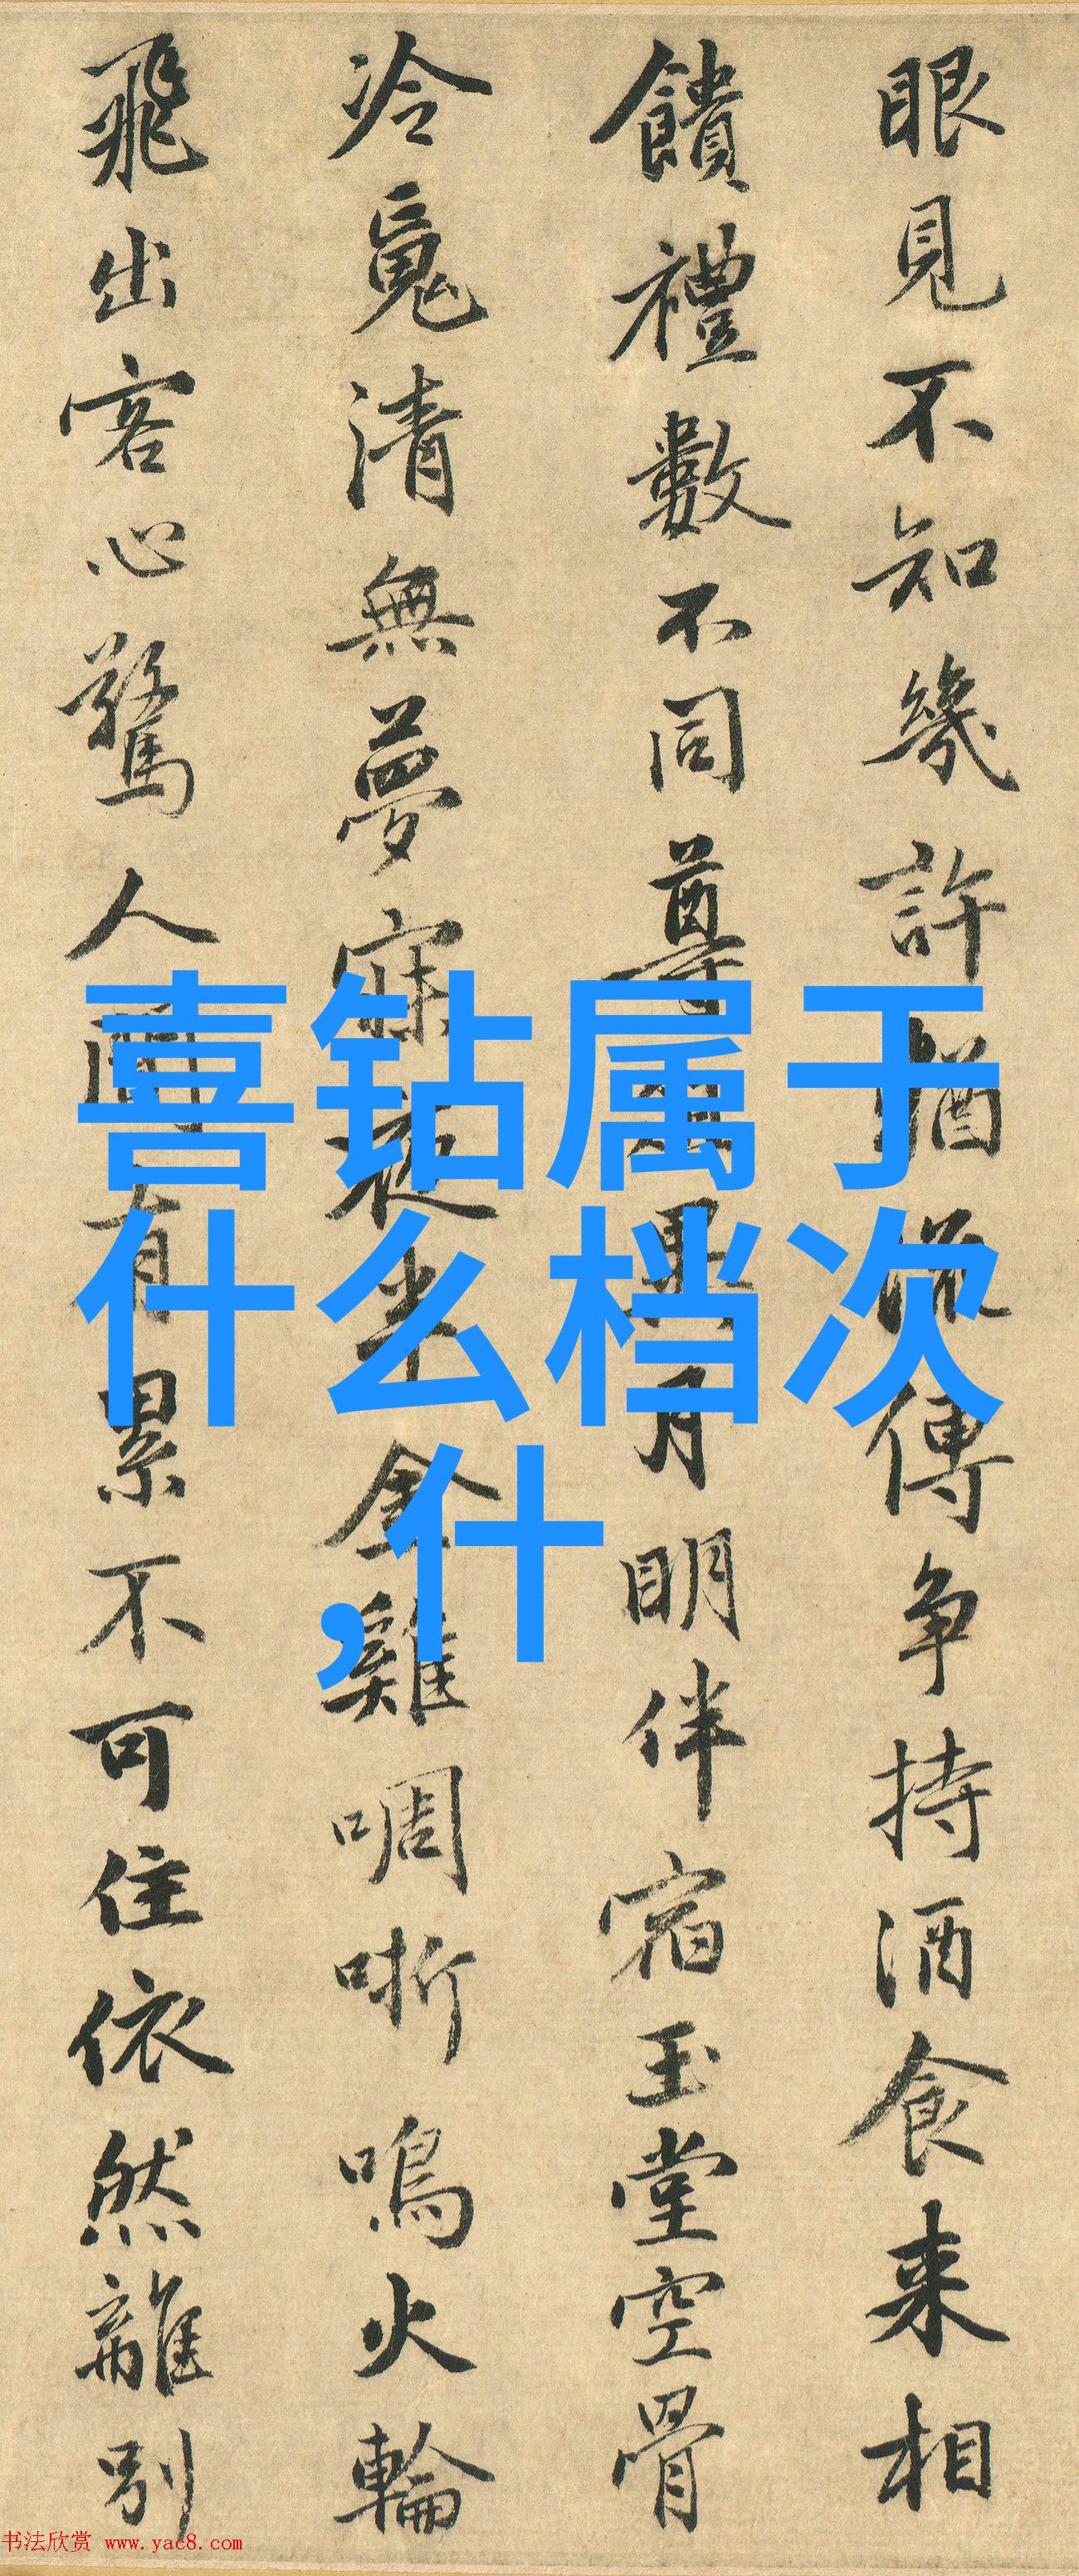 眼見不知幾許猶流傳争持酒食来相
饋禮數不同尊酒果月明伴宿玉堂空骨
冷覓清無夢寐夜半金雞啁哳鳴火輪
飛出客心驚人間有累不可住依然離別
喜钻属于
什么档次
,什
书法欣赏 www.yac8.com